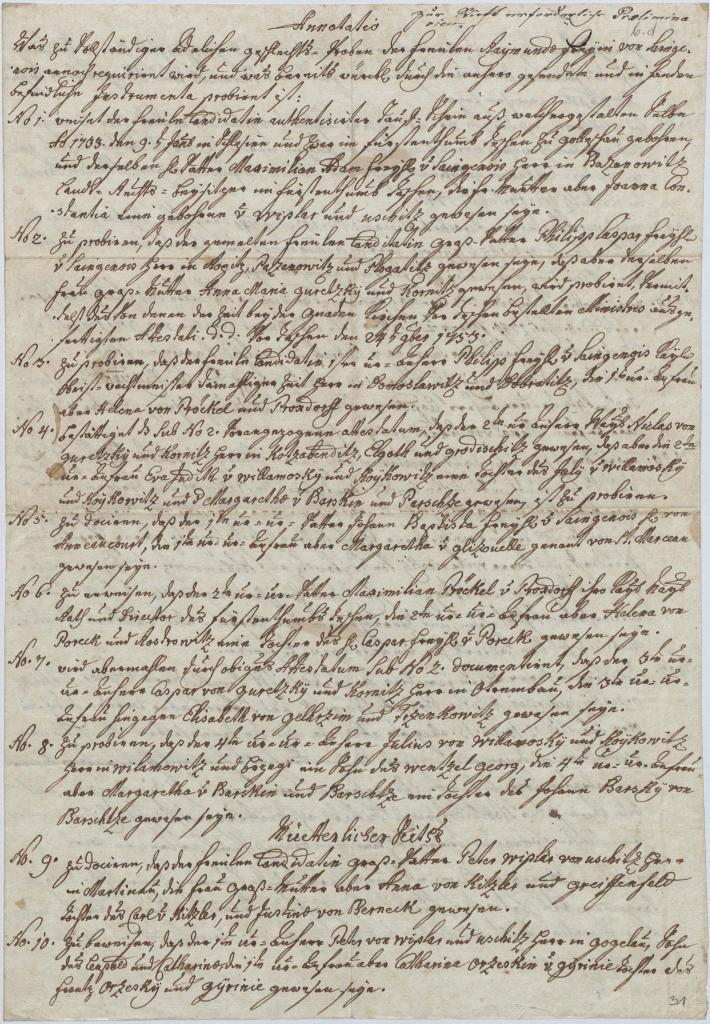 Annotatio
zur Stifft erforderliche Prælimina
rien.
6.d
Was zu Vollständiger adelichen geschlechts-Proben der freülen Raymunda freyin von Sainge-
nois annoch requirirt wird, und was bereits durch die anhero gesendete und in handen
befindliche Instrumenta probirt ist:
No 1. weiset der freülen Candidatin authentisirter Tauf-Schein auß, welchergestalten Selbe
Ao 1733. den 9. in Schlesien und zwar im fürstenthumb Teschen zu golleschau gebohren,
und derselben H. Vatter Maximilian Adam freyh. v Saingenois Herr in Bażanowitz
Landt-Rechts-beysitzer im fürstenthumb Teschen, die fr. Mutter aber Joanna Con-
stantia eine gebohrne v Wiplar und uschitz gewesen seye.
No 2. Zu probiren, daß der gemelten freülen Candidatin groß-Vatter Philipp Caspar freyh.
v Saingenois Herr in Pażanowitz und Rogatitz gewesen seye, daß aber derselben
frau groß-Mutter Anna Maria guretzky und Kornitz gewesen, wird probirt, vermit-
telst des von denen der Zeit bey der gnaden Kirchen vor Teschen bestelten Ministris aus ge-
fertigten Attestati. d.d. Vor Teschen den 24 9ber 1753.
No 3. Zu probiren, daß der freülen Candidatin 1ter ur-anherr Philipp freyh. v Saingenois
Obrist-wachtmeister damahliger Zeit Herr in Domoslawitz und Bobratitz, die 1te ur-anfrau
aber Helena von Pröckel und Proxdorff gewesen.
No 4. bestättiget das sub No 2. vorangezogene attestatum, daß der 2te ur anherr Niclas von
guretzky und Kornitz Herr in Kotzabenditz, Elgoth und grodischitz gewesen, daß aber die 2te
ur-anfrau Eva Judith v willamosky und Koykowitz eine tochter des v willamosky
und Koykowitz und Margaretha v Barskin und Parschtze gewesen, ist zu probiren.
No 5. Zu dociren, daß der 1te ur-ur-Vatter Johann Baptista freyh. v Saingenois H. von
Anneaucourt, die 1te ur-ur-anfrau aber Margaretha v glizouelle genant von St. Marceau
gewesen seye.
No 6. Zu erweisen, daß der 2te ur-ur-Vatter Maximilian Pröckel v Proxdorff
Rath und Director des fürstenthumbs Teschen, die 2te ur-ur-anfrau aber Helena von
Poreck und Kosdrowitz eine tochter des H. Caspar freyh. v Poreck gewesen seye.
No. 7. wird abermahlen durch obiges Attestatum sub No 2. documentirt, daß der 3te ur-
ur-anherr Caspar von guretzky und Kornitz Herr in Otrembau, die 3te ur-ur-
anfrau hingegen Elisabeth von gelhrzim und Trzenkowitz gewesen seye.
No. 8. Zu probiren, daß der 4te ur-ur-anherr Julius von Willamosky und Koykowitz
Herr in wilamowitz und ein Sohn des wentzel georg, die 4te ur-ur-anfrau
aber Margaretha v Barskin und Barschtze ein tochter des Johann Barsky von
Barschtze gewesen seye.
Mütterlicher Seiths
No. 9. Zu dociren, daß der freülen Candidatin groß-Vatter Peter wiplar von uschitz Herr
in Martinau, die frau groß-Mutter aber Anna von Kitzler und greiffenfeld
tochter des Carl v Kitzler, und Justina von Berneck gewesen.
No. 10. Zu beweisen, daß der 1te ur-anherr Peter von wiplar und uschitz Herr in gogelau, Sohn
des Leopold und Catharina, die 1te ur-anfrau aber Catharina Orzeskin v gyrinie tochter des
frantz Orzesky und gyrinie gewesen seye.
31